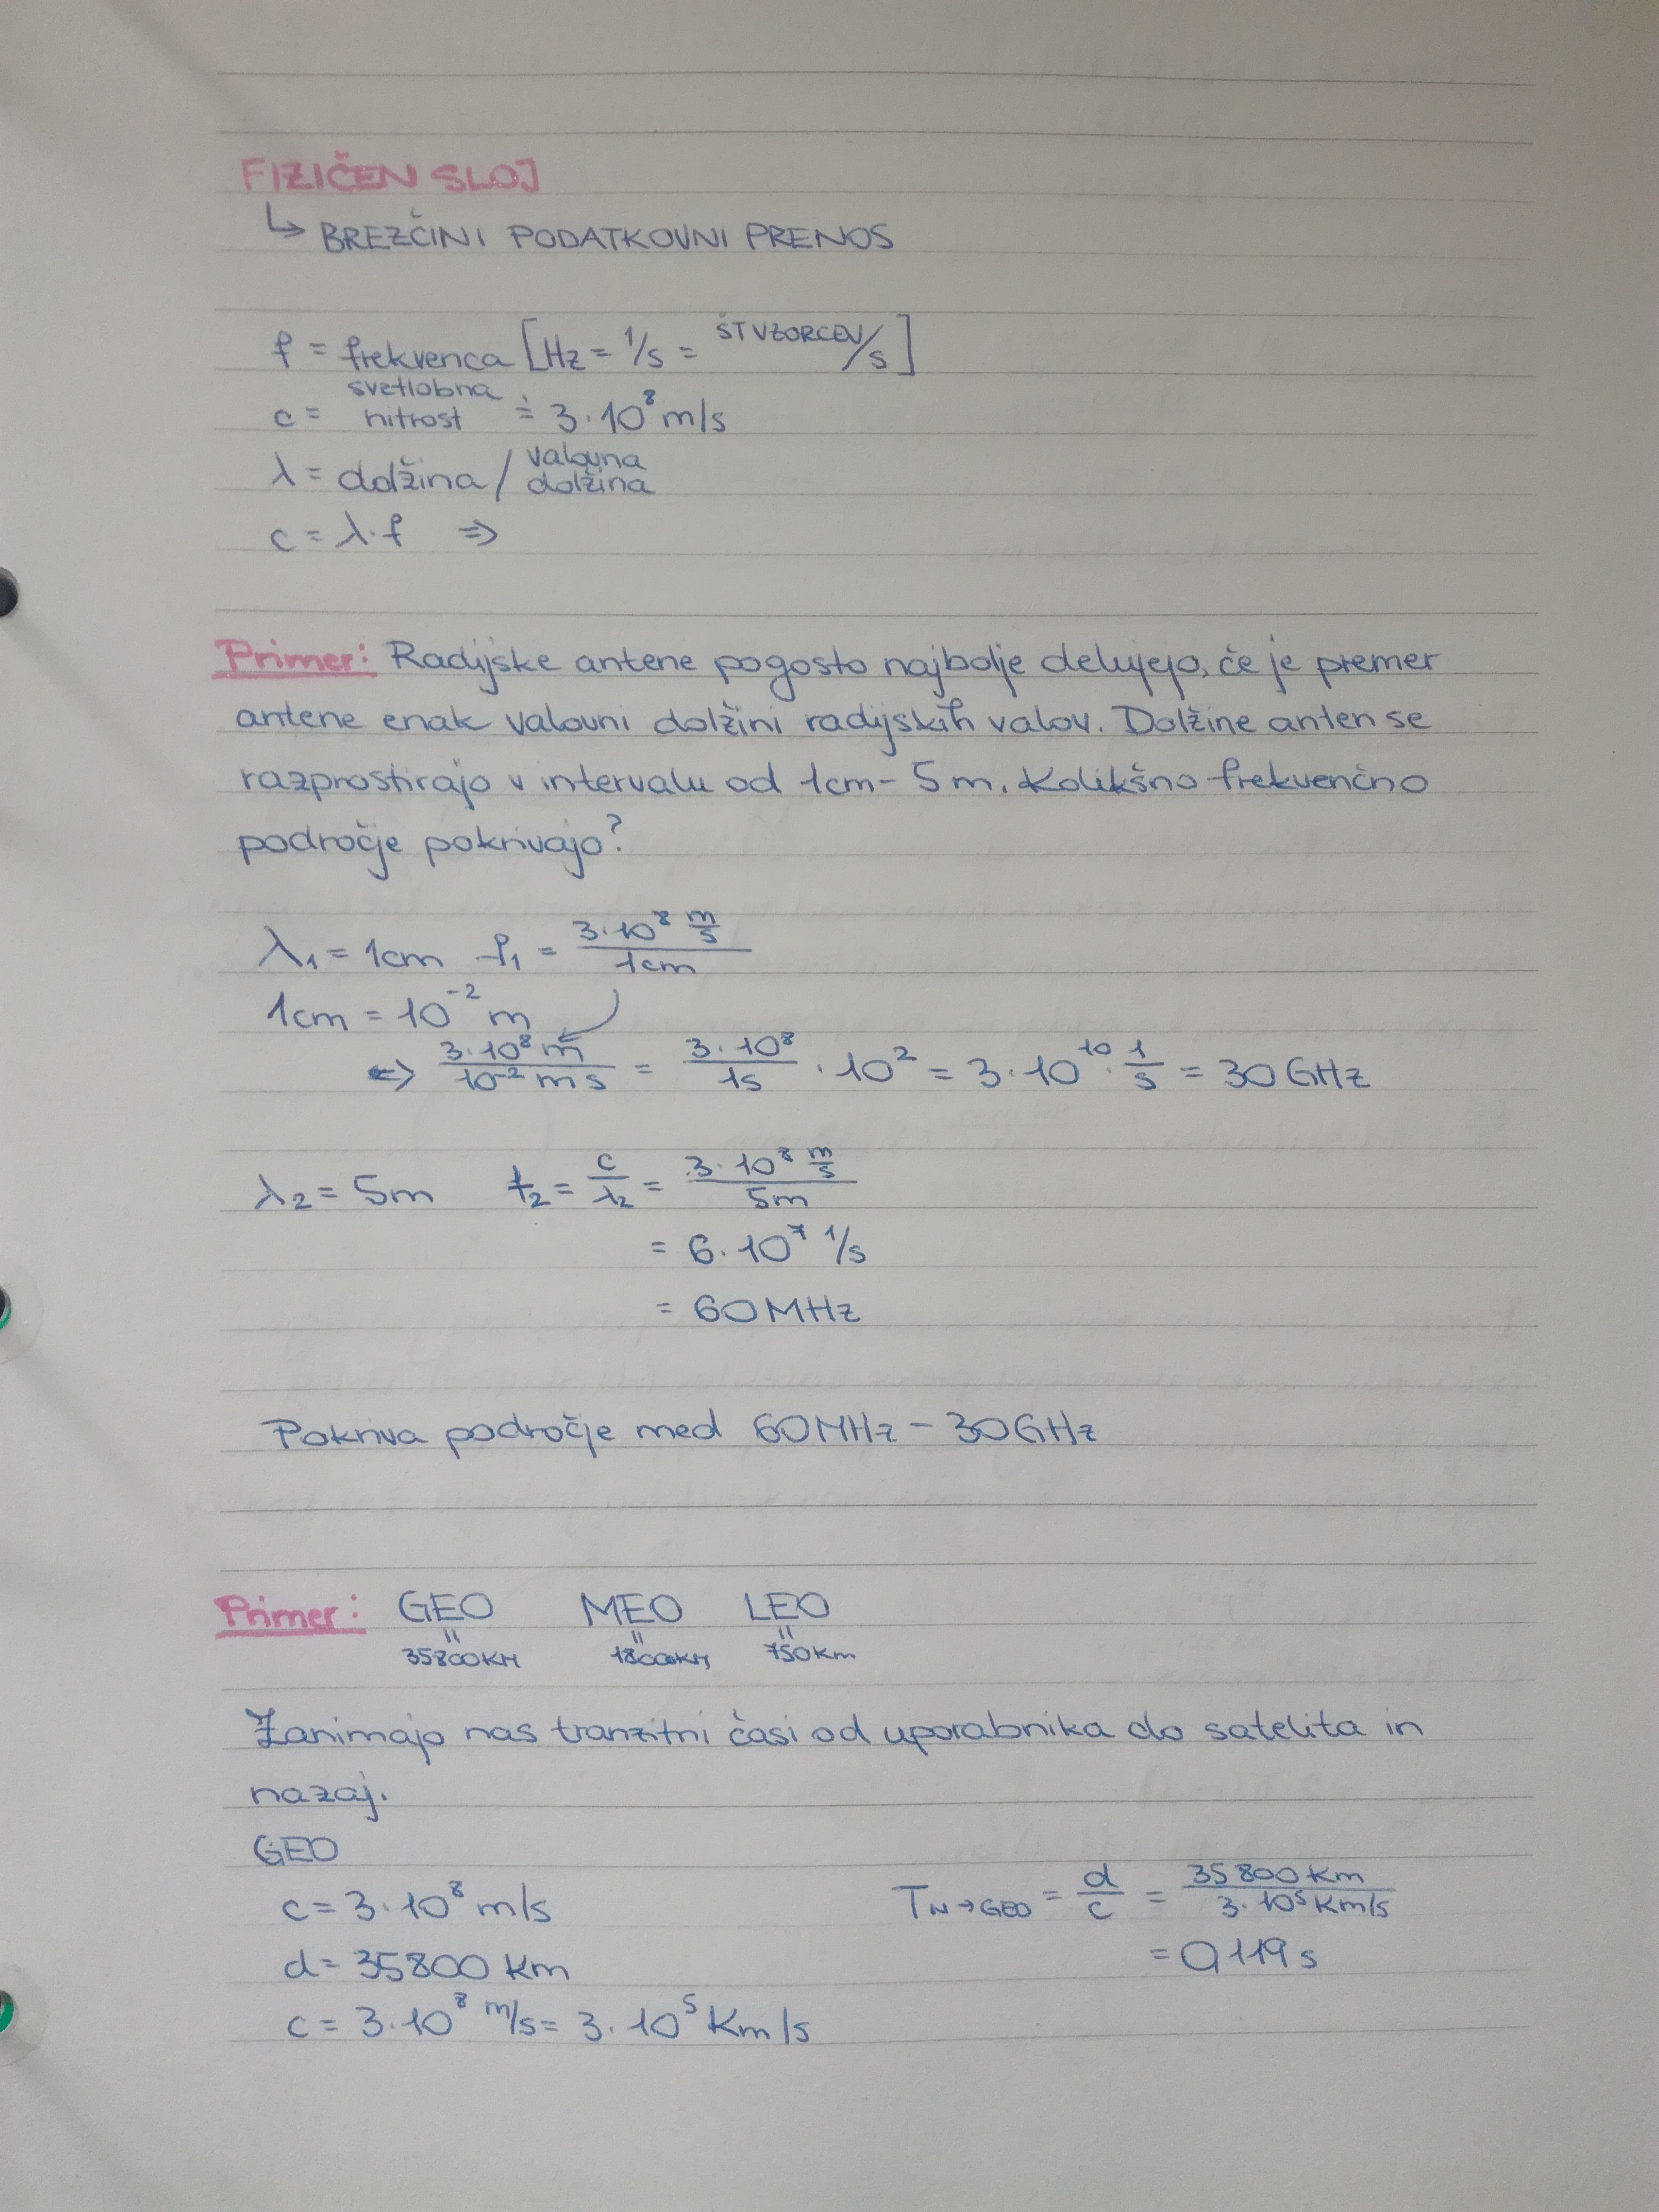 FIZIČEN SLOJ
↳ BREZČINI PODATKOVNI PRENOS
f = frekvenca [Hz = 1/s = ŠT VZORCEV/s]
c = svetlobna hitrost ≐ 3·10⁸ m/s
λ = dolžina / valovna dolžina
c = λ·f ⇒
Primer: Radijske antene pogosto najbolje delujejo, če je premer
antene enak valovni dolžini radijskih valov. Dolžine anten se
razprostirajo v intervalu od 1cm - 5m. Kolikšno frekvenčno
področje pokrivajo?
λ₁ = 1cm f₁ = (3·10⁸ m/s) / 1cm
1cm = 10⁻² m
⇔ (3·10⁸ m) / (10⁻² m s) = (3·10⁸) / 1s · 10² = 3·10¹⁰ · 1/s = 30 GHz
λ₂ = 5m f₂ = c/λ₂ = (3·10⁸ m/s) / 5m
= 6·10⁷ 1/s
= 60MHz
Pokriva področje med 60MHz - 30GHz
Primer: GEO MEO LEO
= 35800KM = 18000KM = 750Km
Zanimajo nas tranzitni časi od uporabnika do satelita in
nazaj.
GEO
c = 3·10⁸ m/s T N→GEO = d/c = 35800 Km / 3·10⁵ Km/s
d = 35800 Km = 0,119 s
c = 3·10⁸ m/s = 3·10⁵ Km/s